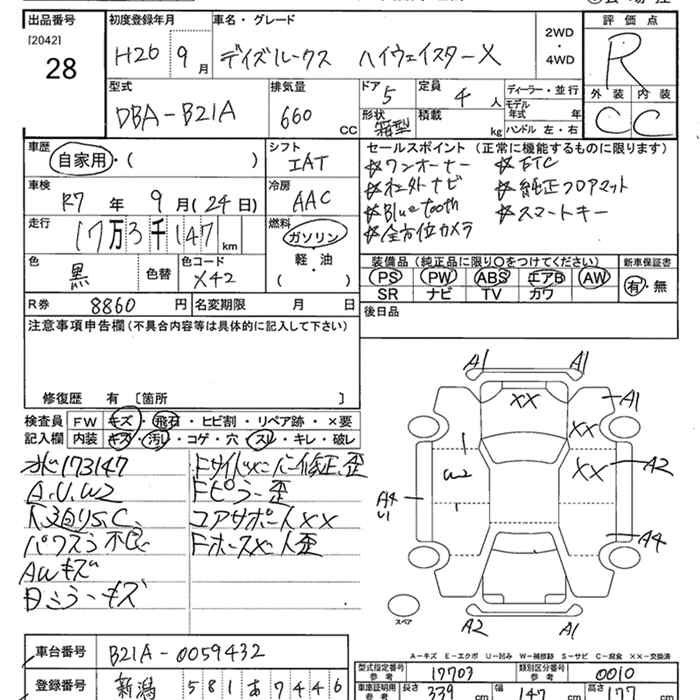 出品番号 初度登録年月 車名・グレード 評価点
[2042] 2WD
28 H26 9月 デイズルークス ハイウェイスターX ・ R
4WD
型式 排気量 ドア 5 定員 4人 ディーラー・並行 外装 内装
DBA-B21A 660 CC 形状 箱型 積載 kg モデル年式 年 C C
ハンドル 左・右
車歴 シフト セールスポイント(正常に機能するものに限ります)
自家用・( ) IAT ☆ワンオーナー ☆ETC
車検 冷房 ☆社外ナビ ☆純正フロアマット
R7年 9月(24日) AAC ☆Bluetooth ☆スマートキー
走行 燃料 ☆全方位カメラ
17万3千147km ガソリン
色 色コード 軽・油 装備品(純正品に限り○をつけてください) 新車保証書
黒 色替 X42 ( ) PS PW ABS エアB AW 有・無
SR ナビ TV カワ
R券 8860円 名変期限 月 日 後日品
注意事項申告欄(不具合内容等は具体的に記入して下さい)
修復歴 有 [箇所 ]
検査員 FW キズ・飛石・ヒビ割・リペア跡・×要
記入欄 内装 キズ・汚レ・コゲ・穴・スレ・キレ・破レ
A.U.W2 Fピラー歪
コアサポートXX
パワスラ不良
AWキズ
Dミラーキズ
A1 A1
XX A1
XX
W2 XX A2
A4
U1
A4
A2 A1
スペア
A-キズ E-エクボ U-凹み W-補修跡 S-サビ C-腐食 XX-交換済
車台番号 B21A-0059432 型式指定番号 参考 17703 類別区分番号 参考 0010
登録番号 新潟 581 あ 7446 車庫証明用 参考 長さ 339cm 幅 147cm 高さ 177cm